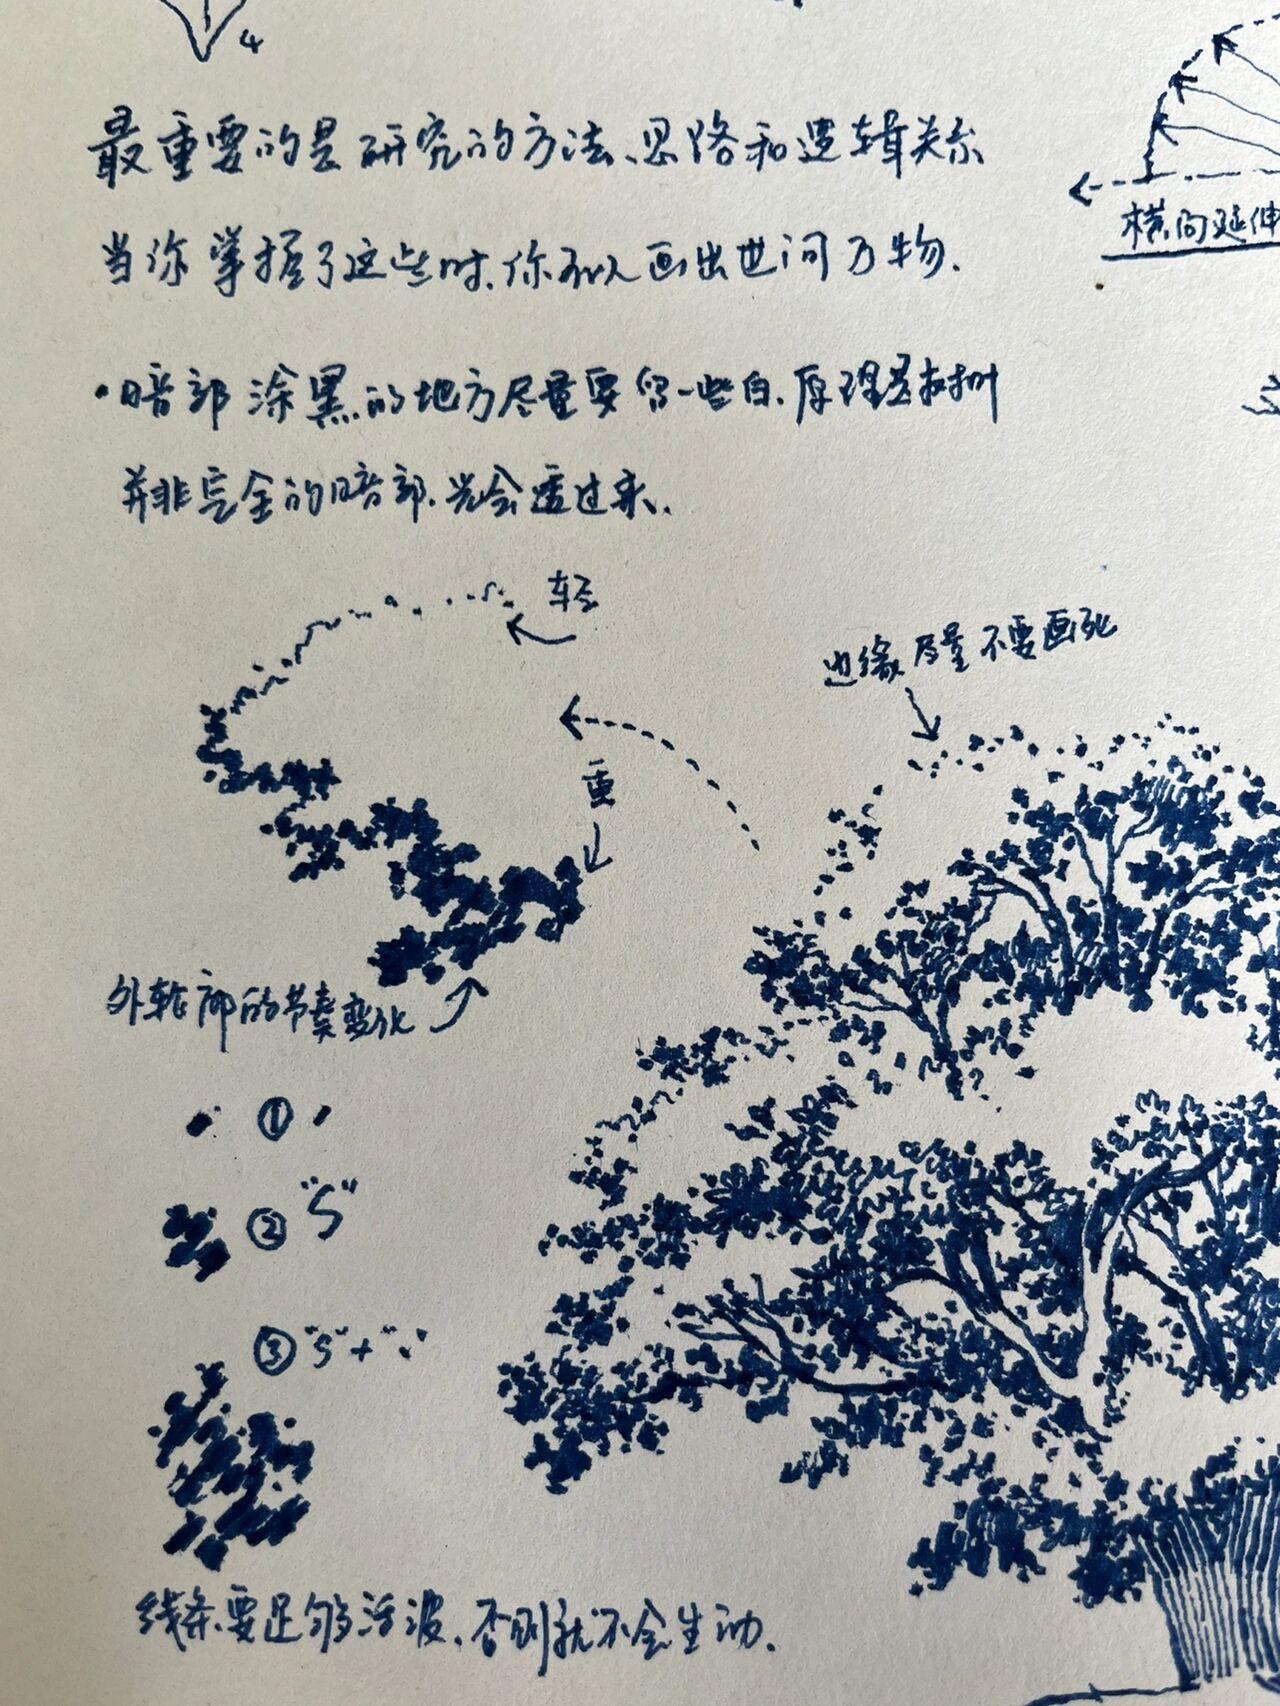 4
最重要的是研究的方法、思路和逻辑关系
当你掌握了这些时,你可以画出世间万物.
横向延伸
·暗部涂黑的地方尽量要留一些白,原理是树
并非完全的暗部,光会透过来.
轻
边缘尽量不要画死
重
外轮廓的节奏变化
①
② "S"
③ "S"+"、"
线条要足够活波,否则就不会生动.